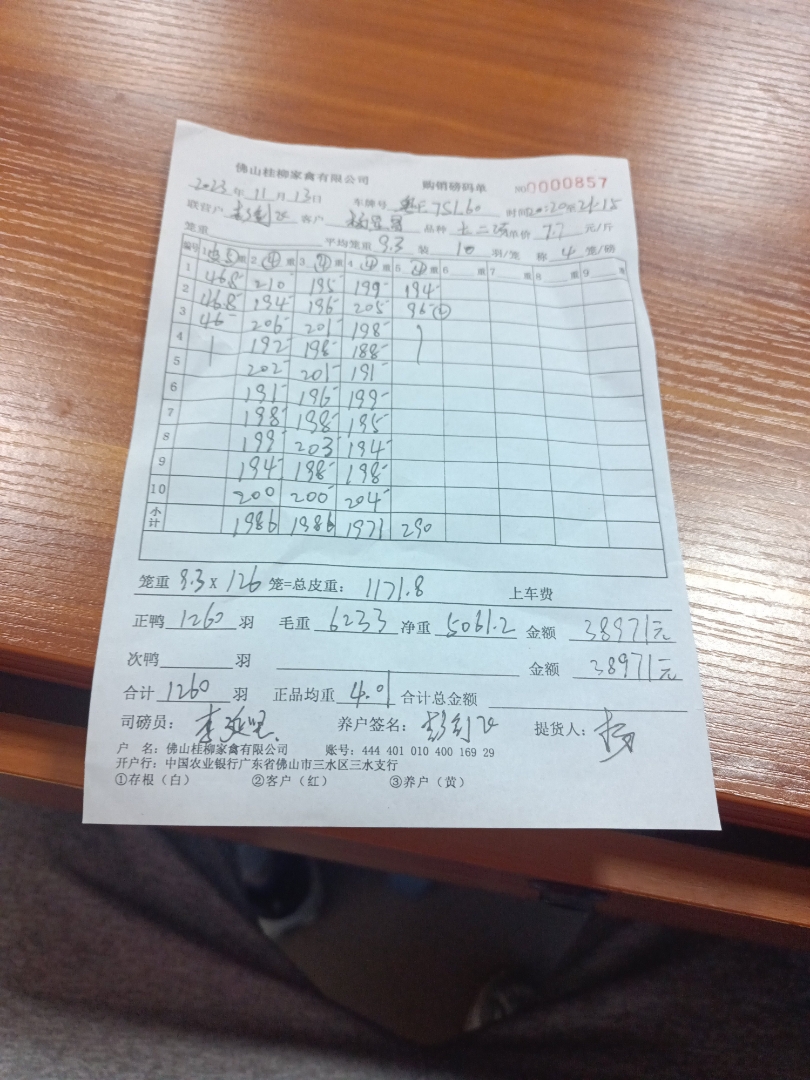 佛山桂柳家禽有限公司 购销磅码单 NO0000857
2023年11月13日 车牌号 粤E 75160 时间20:20至21:15
联营户 客户 品种 土二 单价 7.7 元/斤
笼重 平均笼重 9.3 装 10 羽/笼 称 4 笼/磅
编号 1 (5) 重 2 (4) 重 3 (4) 重 4 (4) 重 5 (4) 重 6 重 7 重 8 重 9 重
1 46.5 210 195 199 194
2 46.8 194 196 205 96 (2)
3 46 206 201 198
4 192 198 188
5 202 201 191
6 191 196 199
7 198 198 195
8 199 203 194
9 194 198 198
10 200 200 204
小计 1986 1986 1971 290
笼重 9.3 x 126 笼=总皮重: 1171.8 上车费
正鸭 1260 羽 毛重 6233 净重 5061.2 金额 38971元
次鸭 羽 金额 38971元
合计 1260 羽 正品均重 4.01 合计总金额
司磅员: 养户签名: 提货人: 杨
户 名: 佛山桂柳家禽有限公司 账号: 444 401 010 400 169 29
开户行: 中国农业银行广东省佛山市三水区三水支行
①存根(白) ②客户(红) ③养户(黄)